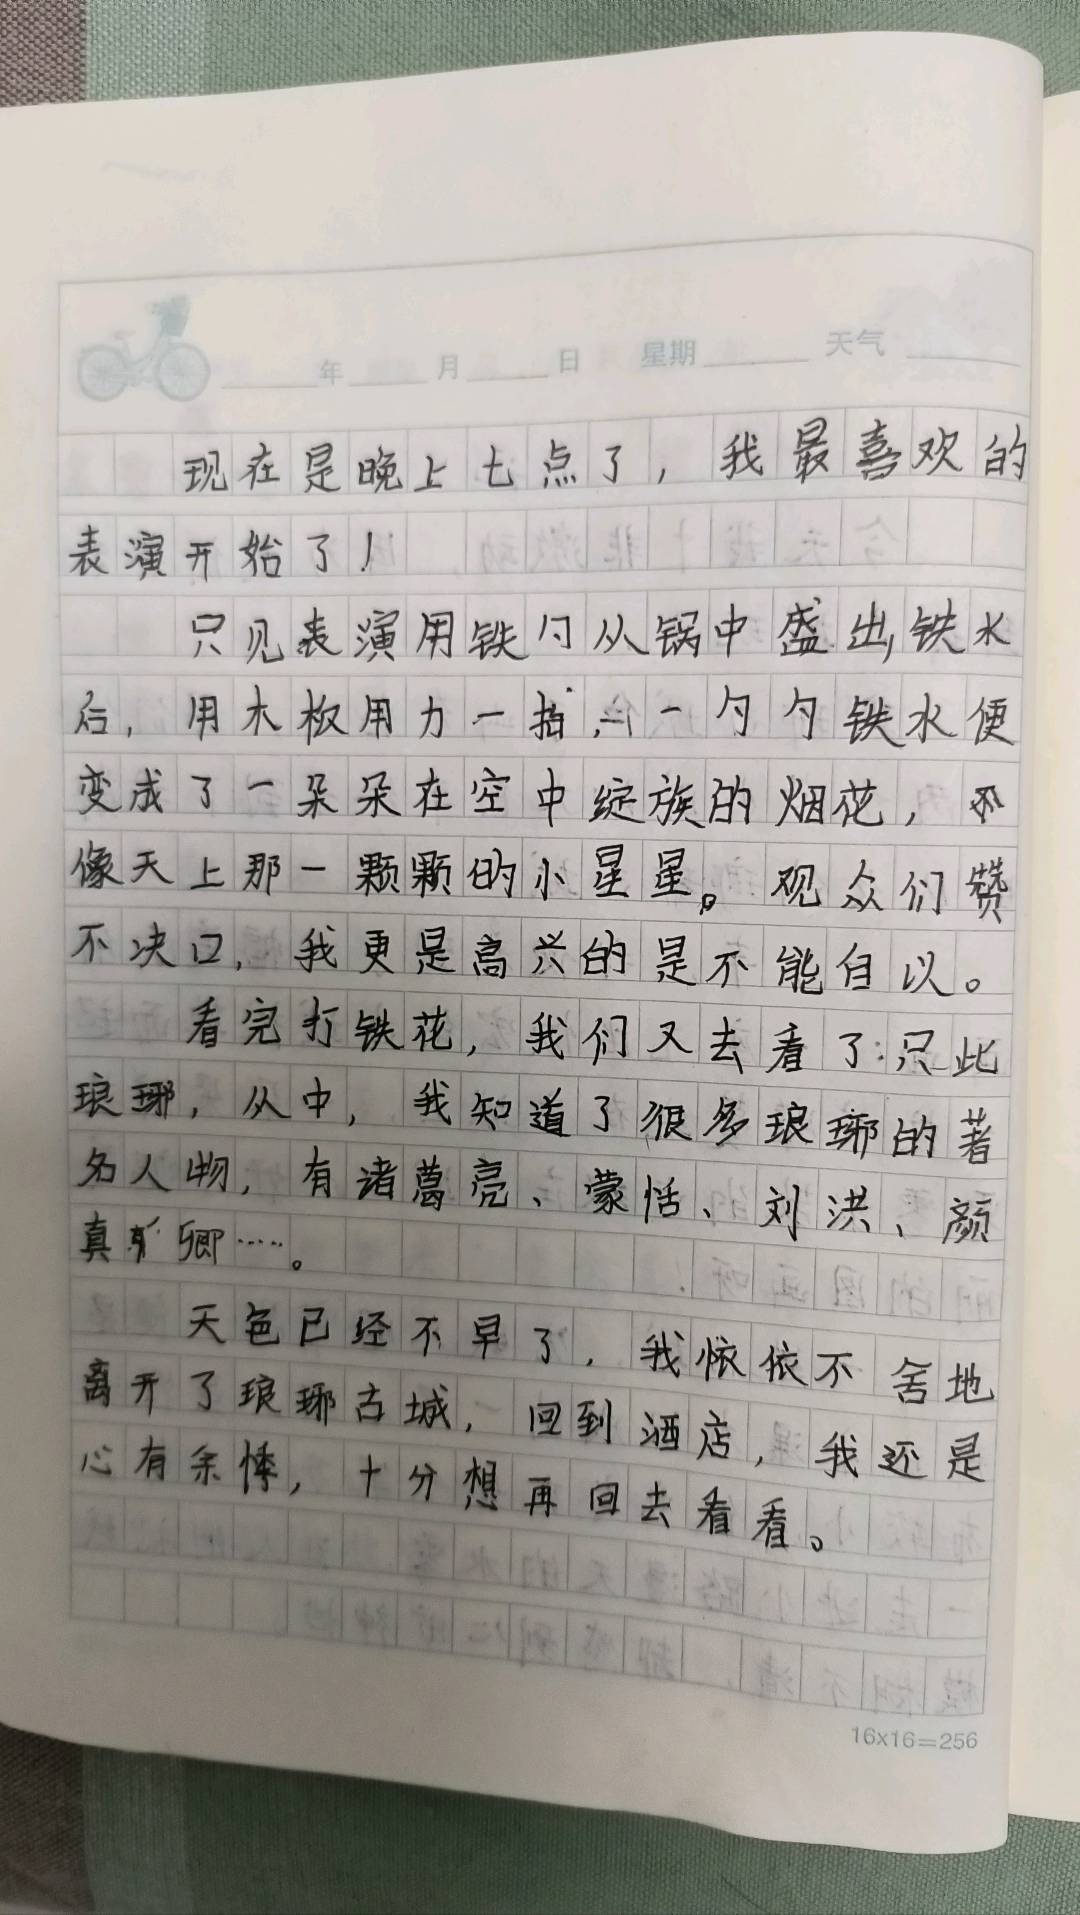 年 月 日 星期 天气
现在是晚上七点了，我最喜欢的
表演开始了！
只见表演用铁勺从锅中盛出，铁水
后，用木板用力一拍，一勺勺铁水便
变成了一朵朵在空中绽族的烟花，
像天上那一颗颗的小星星。观众们赞
不决口，我更是高兴的是不能自以。
看完打铁花，我们又去看了：只此
琅琊，从中，我知道了很多琅琊的著
名人物，有诸葛亮、蒙恬、刘洪、颜
真卿……。
天色已经不早了，我依依不舍地
离开了琅琊古城，回到酒店，我还是
心有余悸，十分想再回去看看。
16x16=256